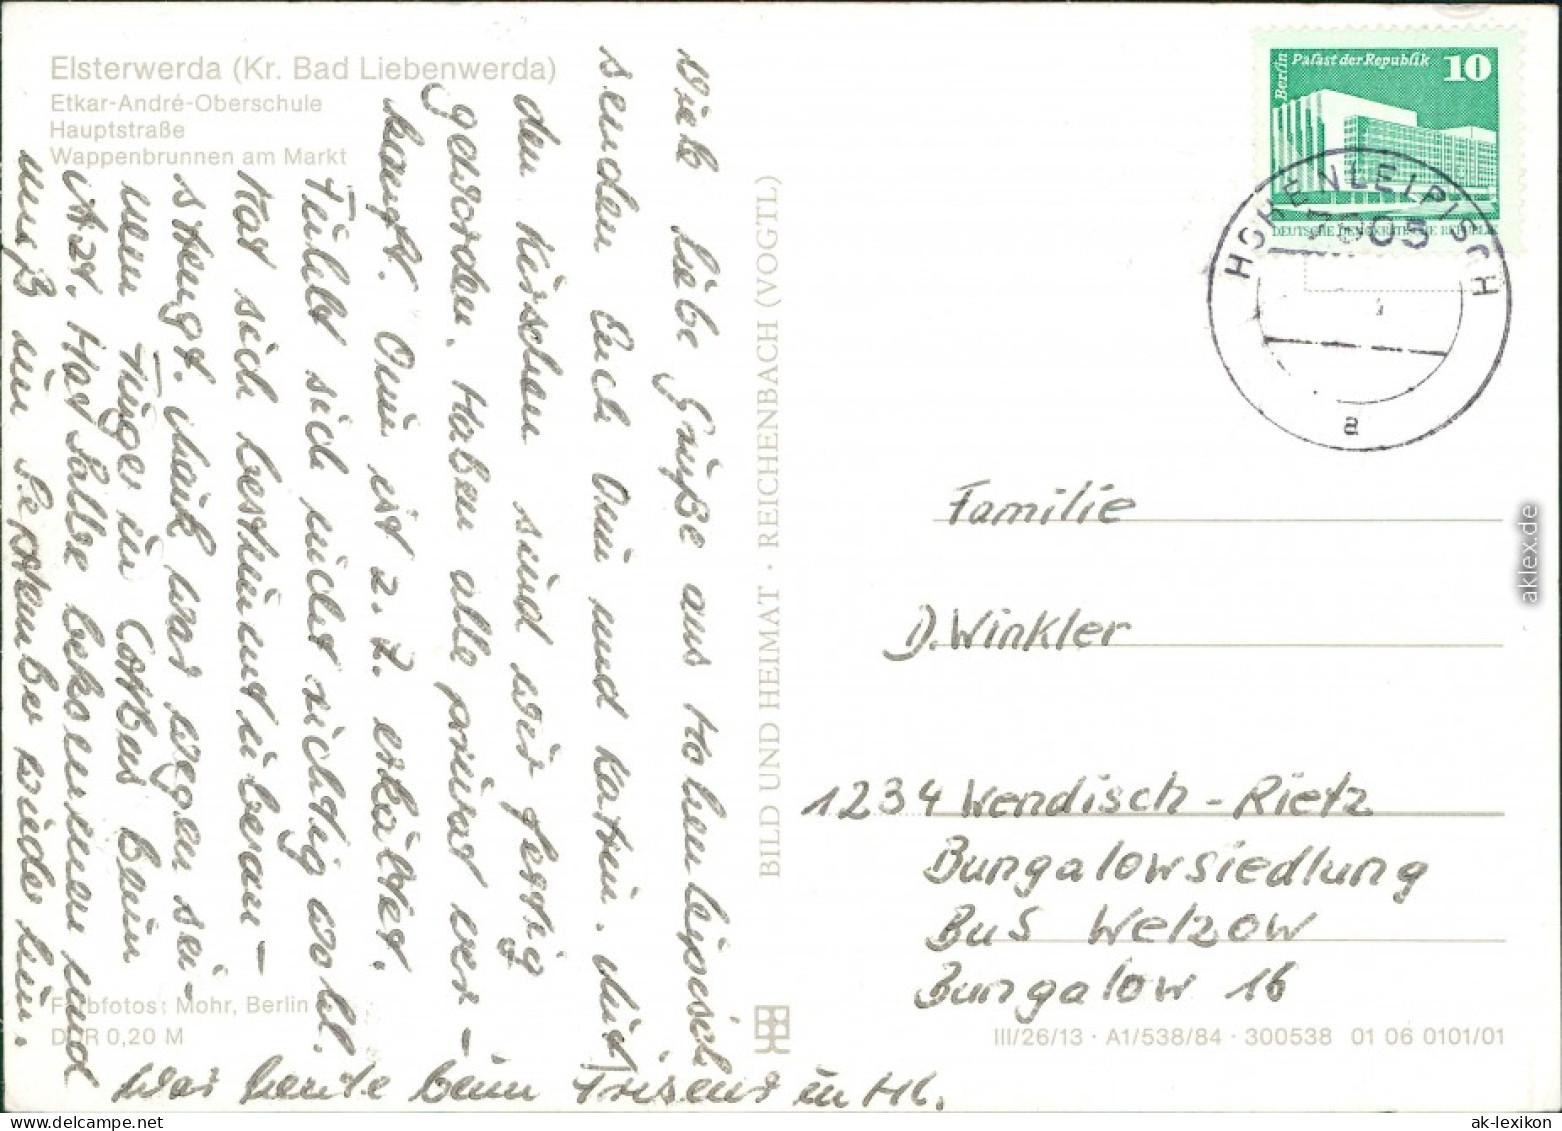 Elsterwerda (Kr. Bad Liebenwerda)
Etkar-André-Oberschule
Hauptstraße
Wappenbrunnen am Markt
Berlin Palast der Republik 10
DEUTSCHE DEMOKRATISCHE REPUBLIK
HOHENLEIPISCH
7905
a
Viele liebe Grüße aus Hohenleipisch
senden Euch Omi und Katrin. Mit
den Kirschen sind wir fertig
geworden. Haben alle privat ver-
kauft. Omi ist z. Z. erkältet.
Fühlt sich nicht richtig wohl.
Hat sich bestimmt überan-
strengt. Maik war wegen sei-
nem Finger in Cottbus beim
Arzt. Hat Salbe bekommen und
muß im September wieder hin.
War heute beim Friseur in Hl.
BILD UND HEIMAT · REICHENBACH (VOGTL)
Familie
D. Winkler
1234 Wendisch-Rietz
Bungalowsiedlung
BuS Welzow
Bungalow 16
Farbfotos: Mohr, Berlin
DDR 0,20 M
III/26/13 · A1/538/84 · 300538 01 06 0101/01
aklex.de
ak-lexikon